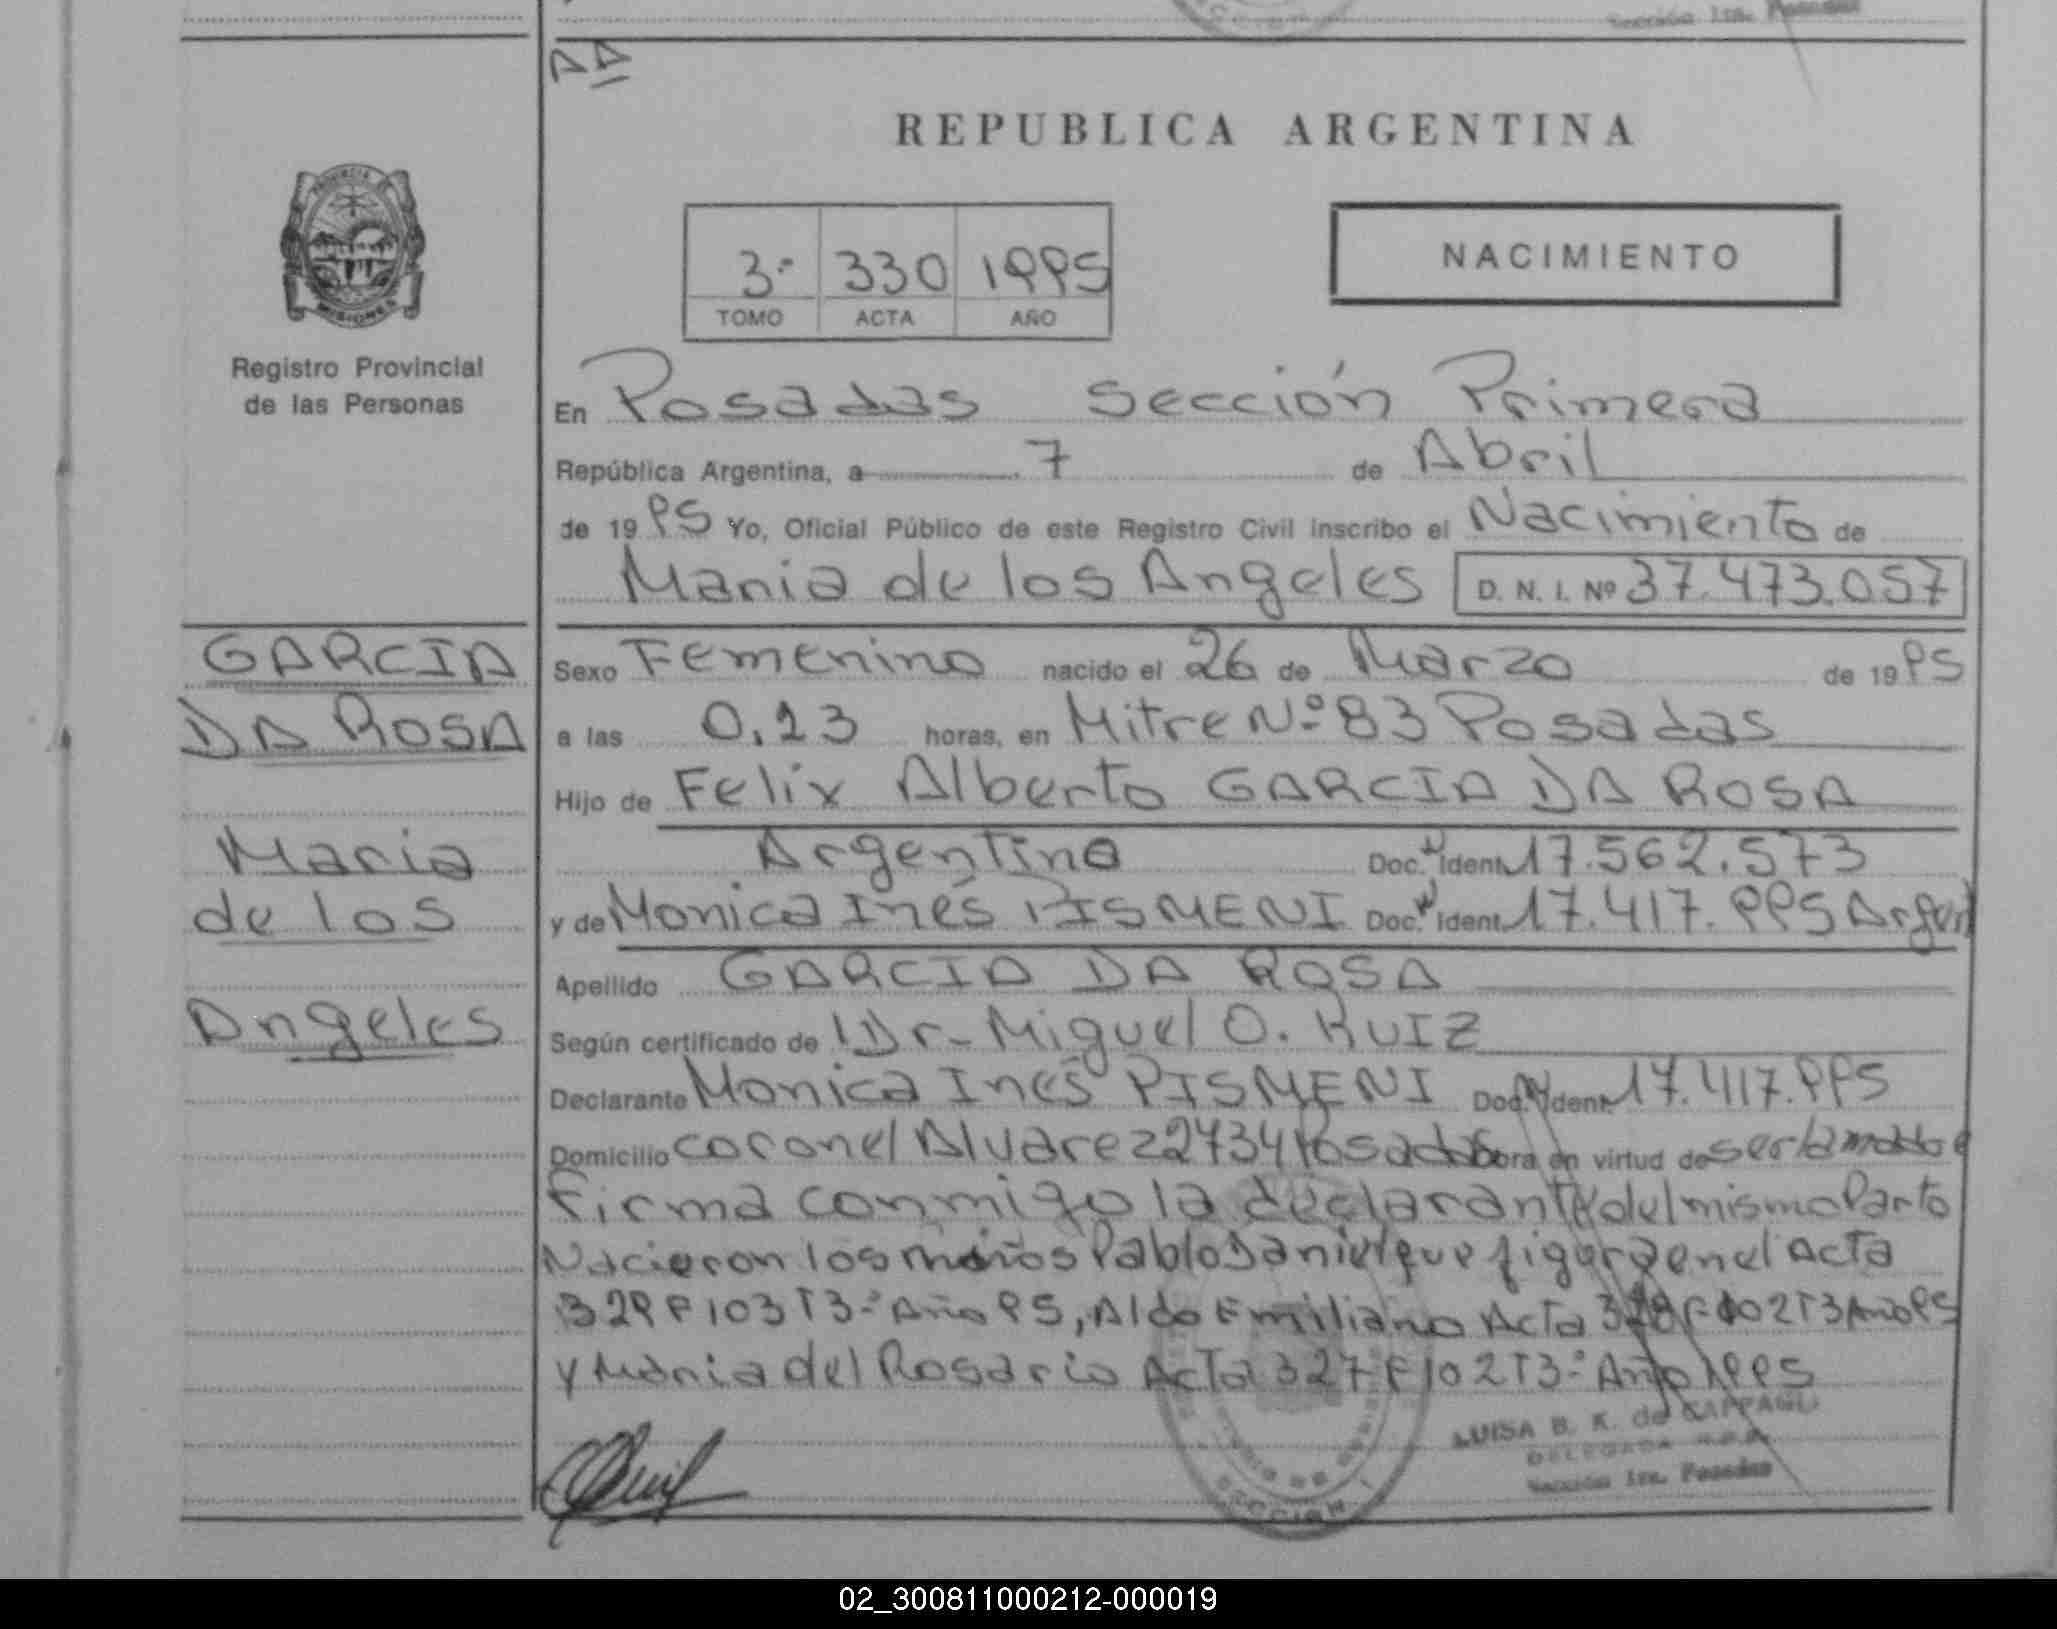 Sección 1ra. Posadas
AA
REPUBLICA ARGENTINA
PROVINCIA DE
MISIONES
3º 330 1995
TOMO ACTA AÑO
NACIMIENTO
Registro Provincial
de las Personas
En Posadas Sección Primera
República Argentina, a 7 de Abril
de 1995 Yo, Oficial Público de este Registro Civil inscribo el Nacimiento de
Maria de los Angeles D. N. I. Nº 37.473.057
GARCIA
DA ROSA
Maria
de los
Angeles
Sexo Femenino nacido el 26 de Marzo de 1995
a las 0.23 horas, en Mitre Nº 83 Posadas
Hijo de Felix Alberto GARCIA DA ROSA
Argentino Doc. Ident. 17.562.573
y de Monica Inés PISMENI Doc. Ident. 17.417.995 Argen
Apellido GARCIA DA ROSA
Según certificado de Dr. Miguel O. RUIZ
Declarante Monica Inés PISMENI Doc. Ident. 17.417.995
Domicilio Coronel Alvarez 2734 Posadas obra en virtud de ser la madre
Firma conmigo la declarante y del mismo Parto
Nacieron los niños Pablo Daniel que figura en el Acta
329 F 103 T3º Año 95, Aldo Emiliano Acta 328 F 102 T3 Año 95
y Maria del Rosario Acta 327 F 102 T3º Año 1995
LUISA B. K. de CAPPAGLI
DELEGADA R.P.P.
Sección 1ra. Posadas
SECCION 1
02_300811000212-000019